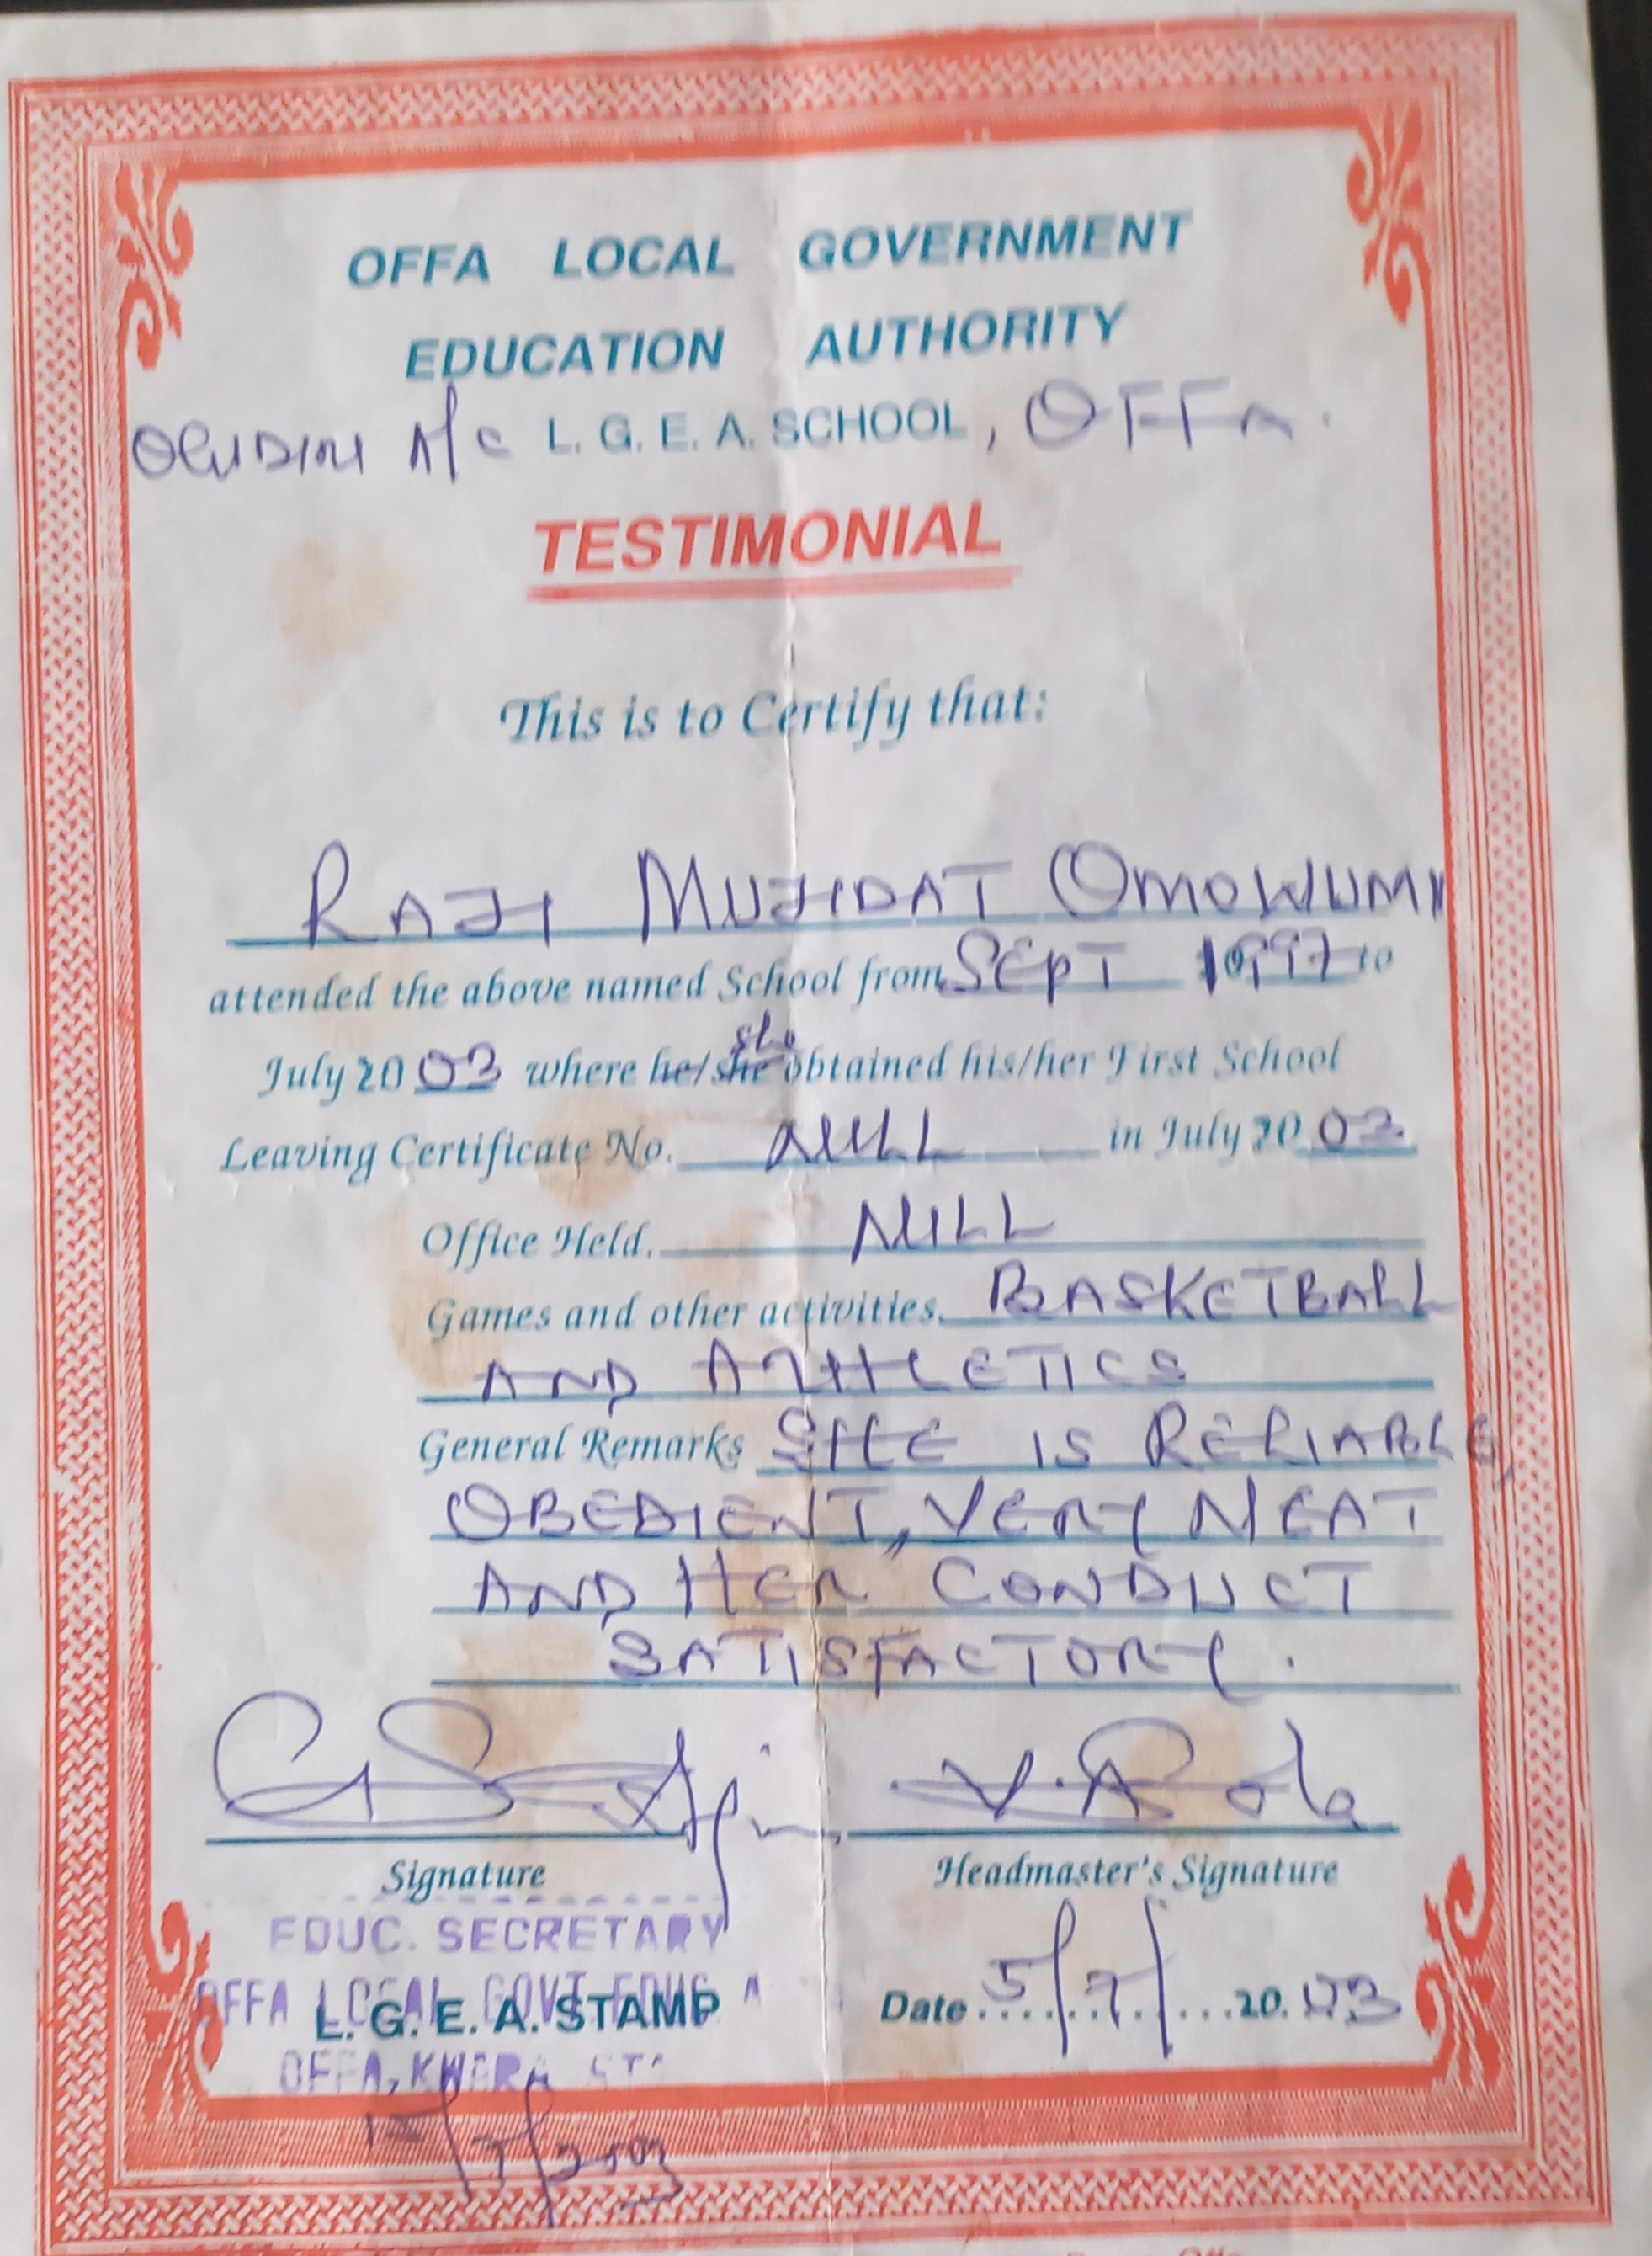 OFFA LOCAL GOVERNMENT
EDUCATION AUTHORITY
A/C L. G. E. A. SCHOOL, OFFA.
TESTIMONIAL
This is to Certify that:
RAJI MUJIDAT OMOWUMI
attended the above named School from SEPT 1997 to
July 20 03 where he/she she obtained his/her First School
Leaving Certificate No. NILL in July 20 03
Office Held. NILL
Games and other activities. BASKETBALL
AND ATHLETICS
General Remarks SHE IS RELIABLE,
OBEDIENT, VERY NEAT
AND HER CONDUCT
SATISFACTORY.
Signature Headmaster's Signature
EDUC. SECRETARY
OFFA LOCAL GOVT EDUC A
L. G. E. A. STAMP Date 5/7/ 20. 03
OFFA, KWARA
15/7/2003